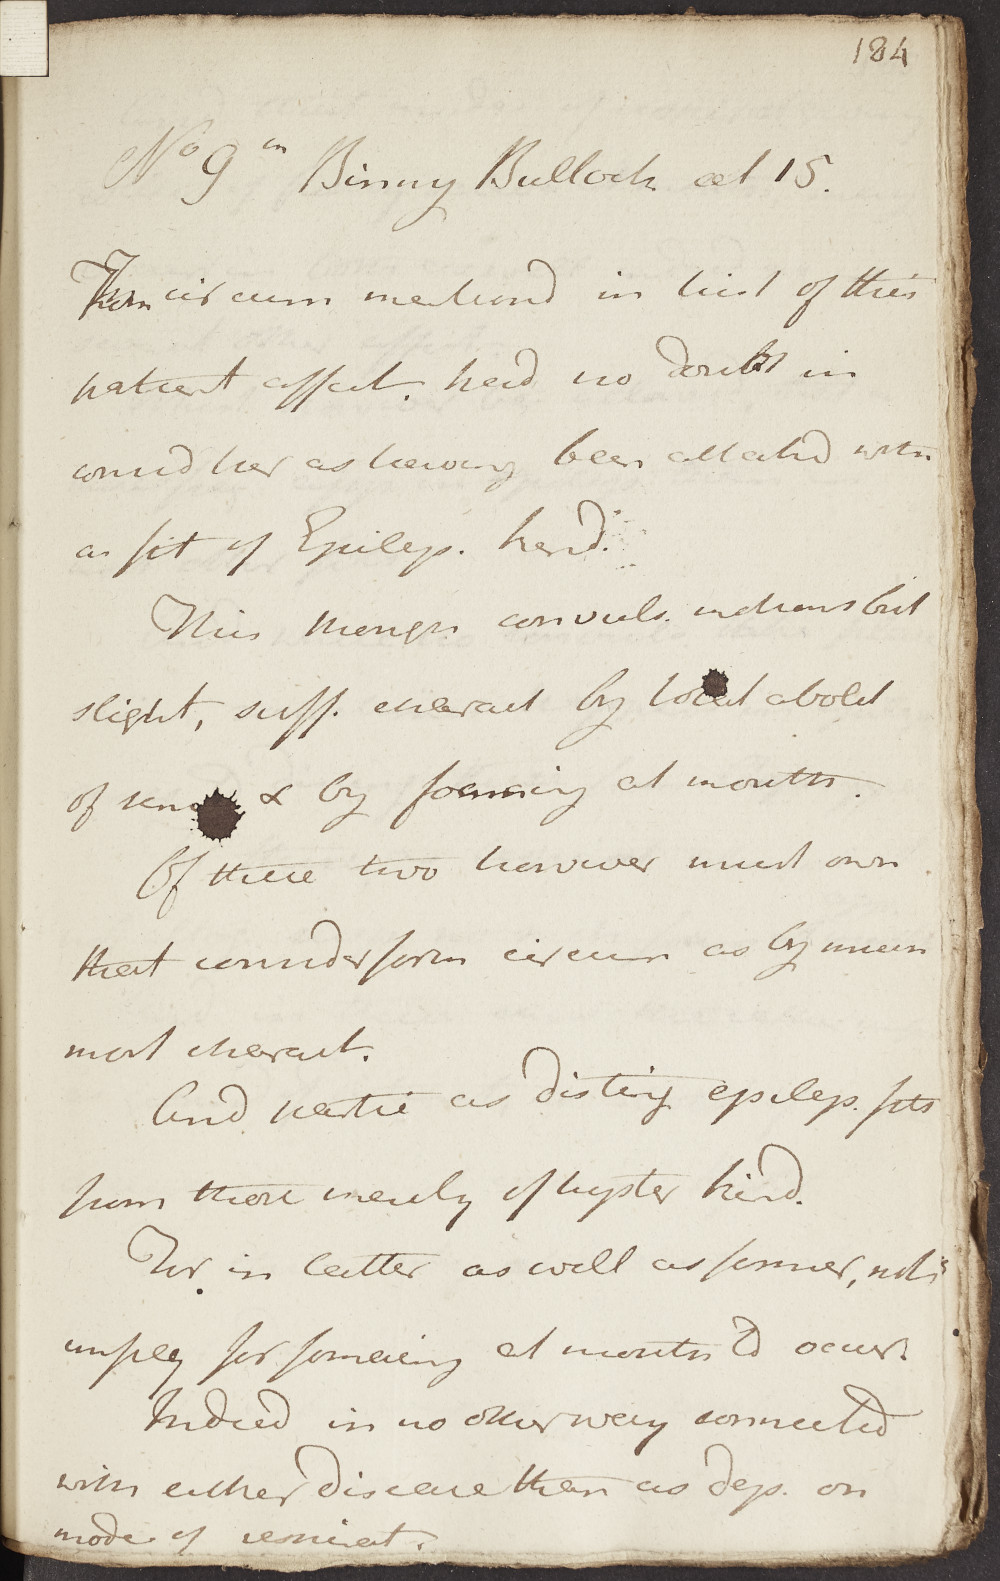 184
No 9 m Binny Bullock æt 15.
From circum mentiond in hist of this
patient affect. had no doubt in
consid her as having been attackd with
a fit of Epilep. kind.
This though convuls. motions but
slight, suff. charact by total abolit
of sense & by foaming at mouth.
Of these two however must own
that consider form circum as by mean
most charact.
And partic as disting epilep. fits
from those merely of hyster kind.
For in latter as well as former, not
unfreq for foaming at mouth to occur.
Indeed in no other way connected
with either disease than as dep. on
mode of respirat.